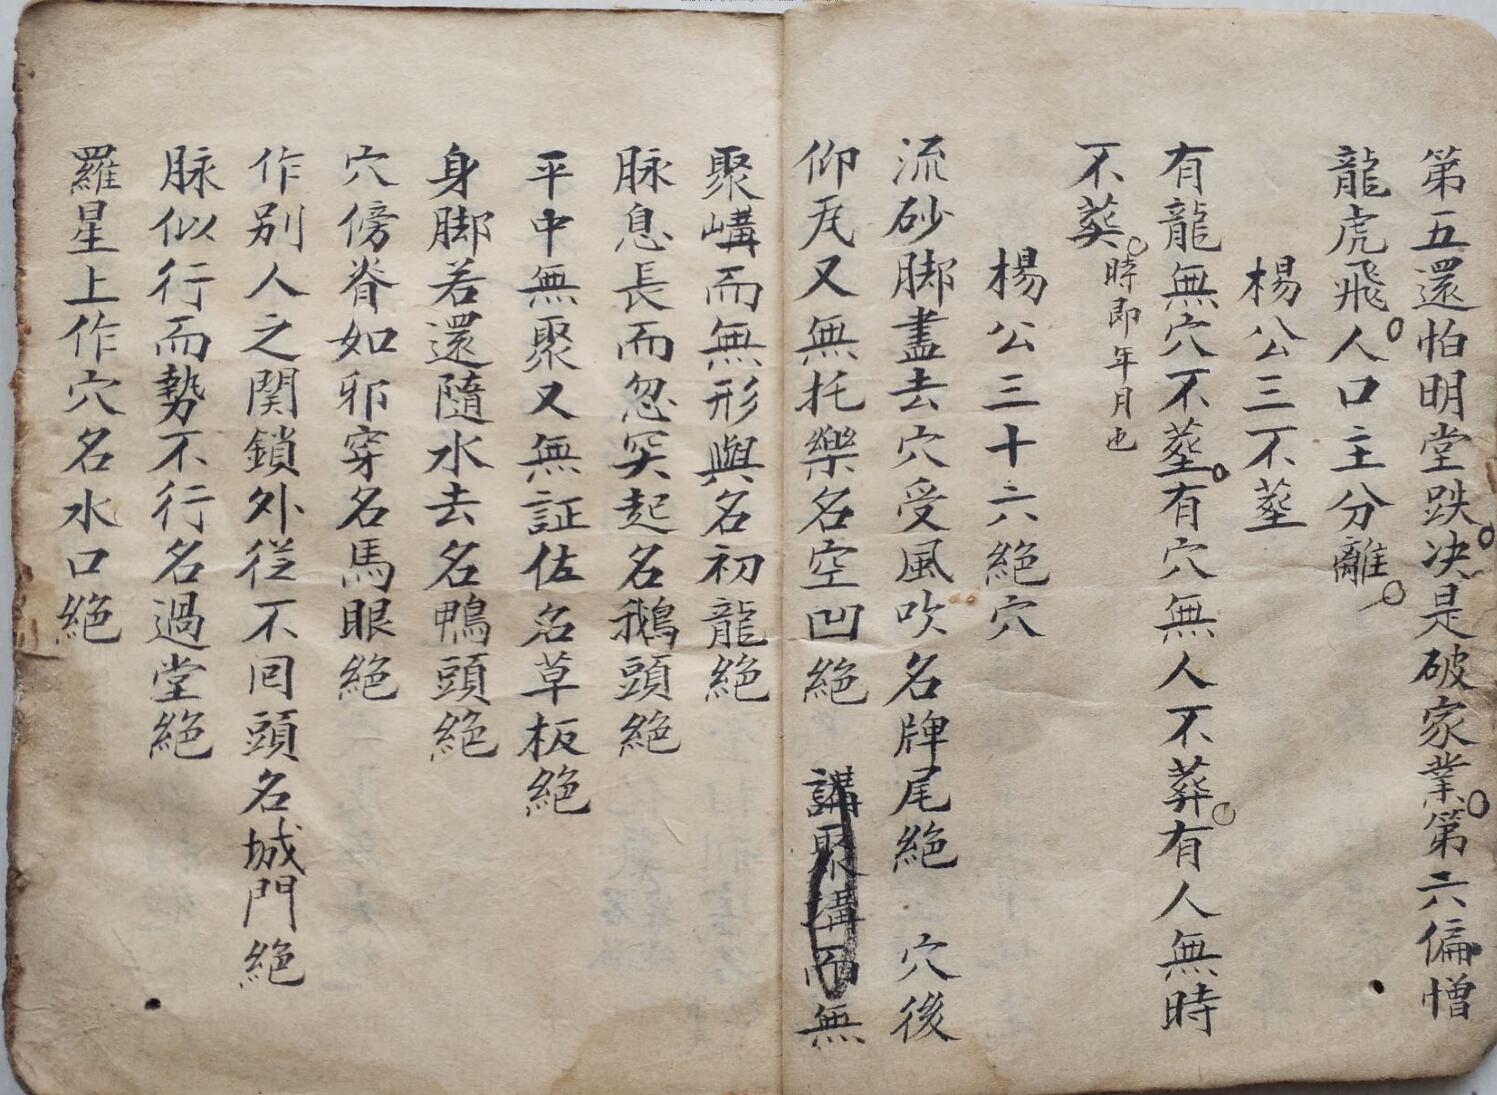 第五還怕明堂跌決是破家業第六偏憎
龍虎飛人口主分離
楊公三不塟
有龍無穴不塟有穴無人不葬有人無時
不葬時即年月也
楊公三十六絕穴
流砂脚盡去穴受風吹名牌尾絕 穴後
仰瓦又無托樂名空凹絕 講聚構而無
聚嶹而無形與名初龍絕
脉息長而忽突起名鵝頭絕
平中無聚又無証佐名草板絕
身脚若還隨水去名鴨頭絕
穴傍脊如邪穿名馬眼絕
作別人之関鎖外従不囘頭名城門絕
脉似行而勢不行名過堂絕
羅星上作穴名水口絕